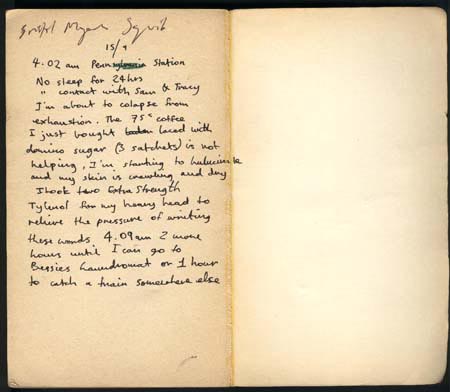 Bristol Myers Squib
15/9
4.02 am Pennsylvania Station
No sleep for 24hrs
" contact with Sam & Tracy
I'm about to colapse from
exhaustion. The 75c coffee
I just bought laced with
domino sugar (3 satchets) is not
helping, I'm starting to halucinate
and my skin is crawling and dry
I took two Extra Strength
Tylenol for my heavy head to
relieve the pressure of writing
these words 4.09am 2 more
hours until I can go to
Bessies Laundromat or 1 hour
to catch a train somewhere else